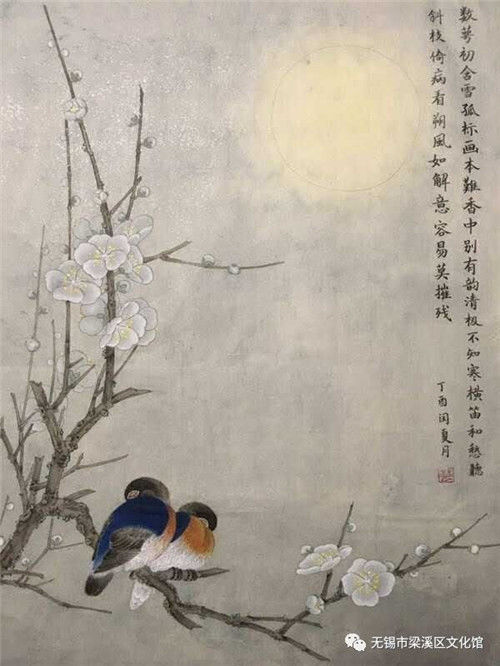 数萼初含雪孤标画本难香中别有韵清极不知寒横笛和愁聽
斜枝倚病看朔風如解意容易莫摧残
丁酉闰夏月
无锡市梁溪区文化馆